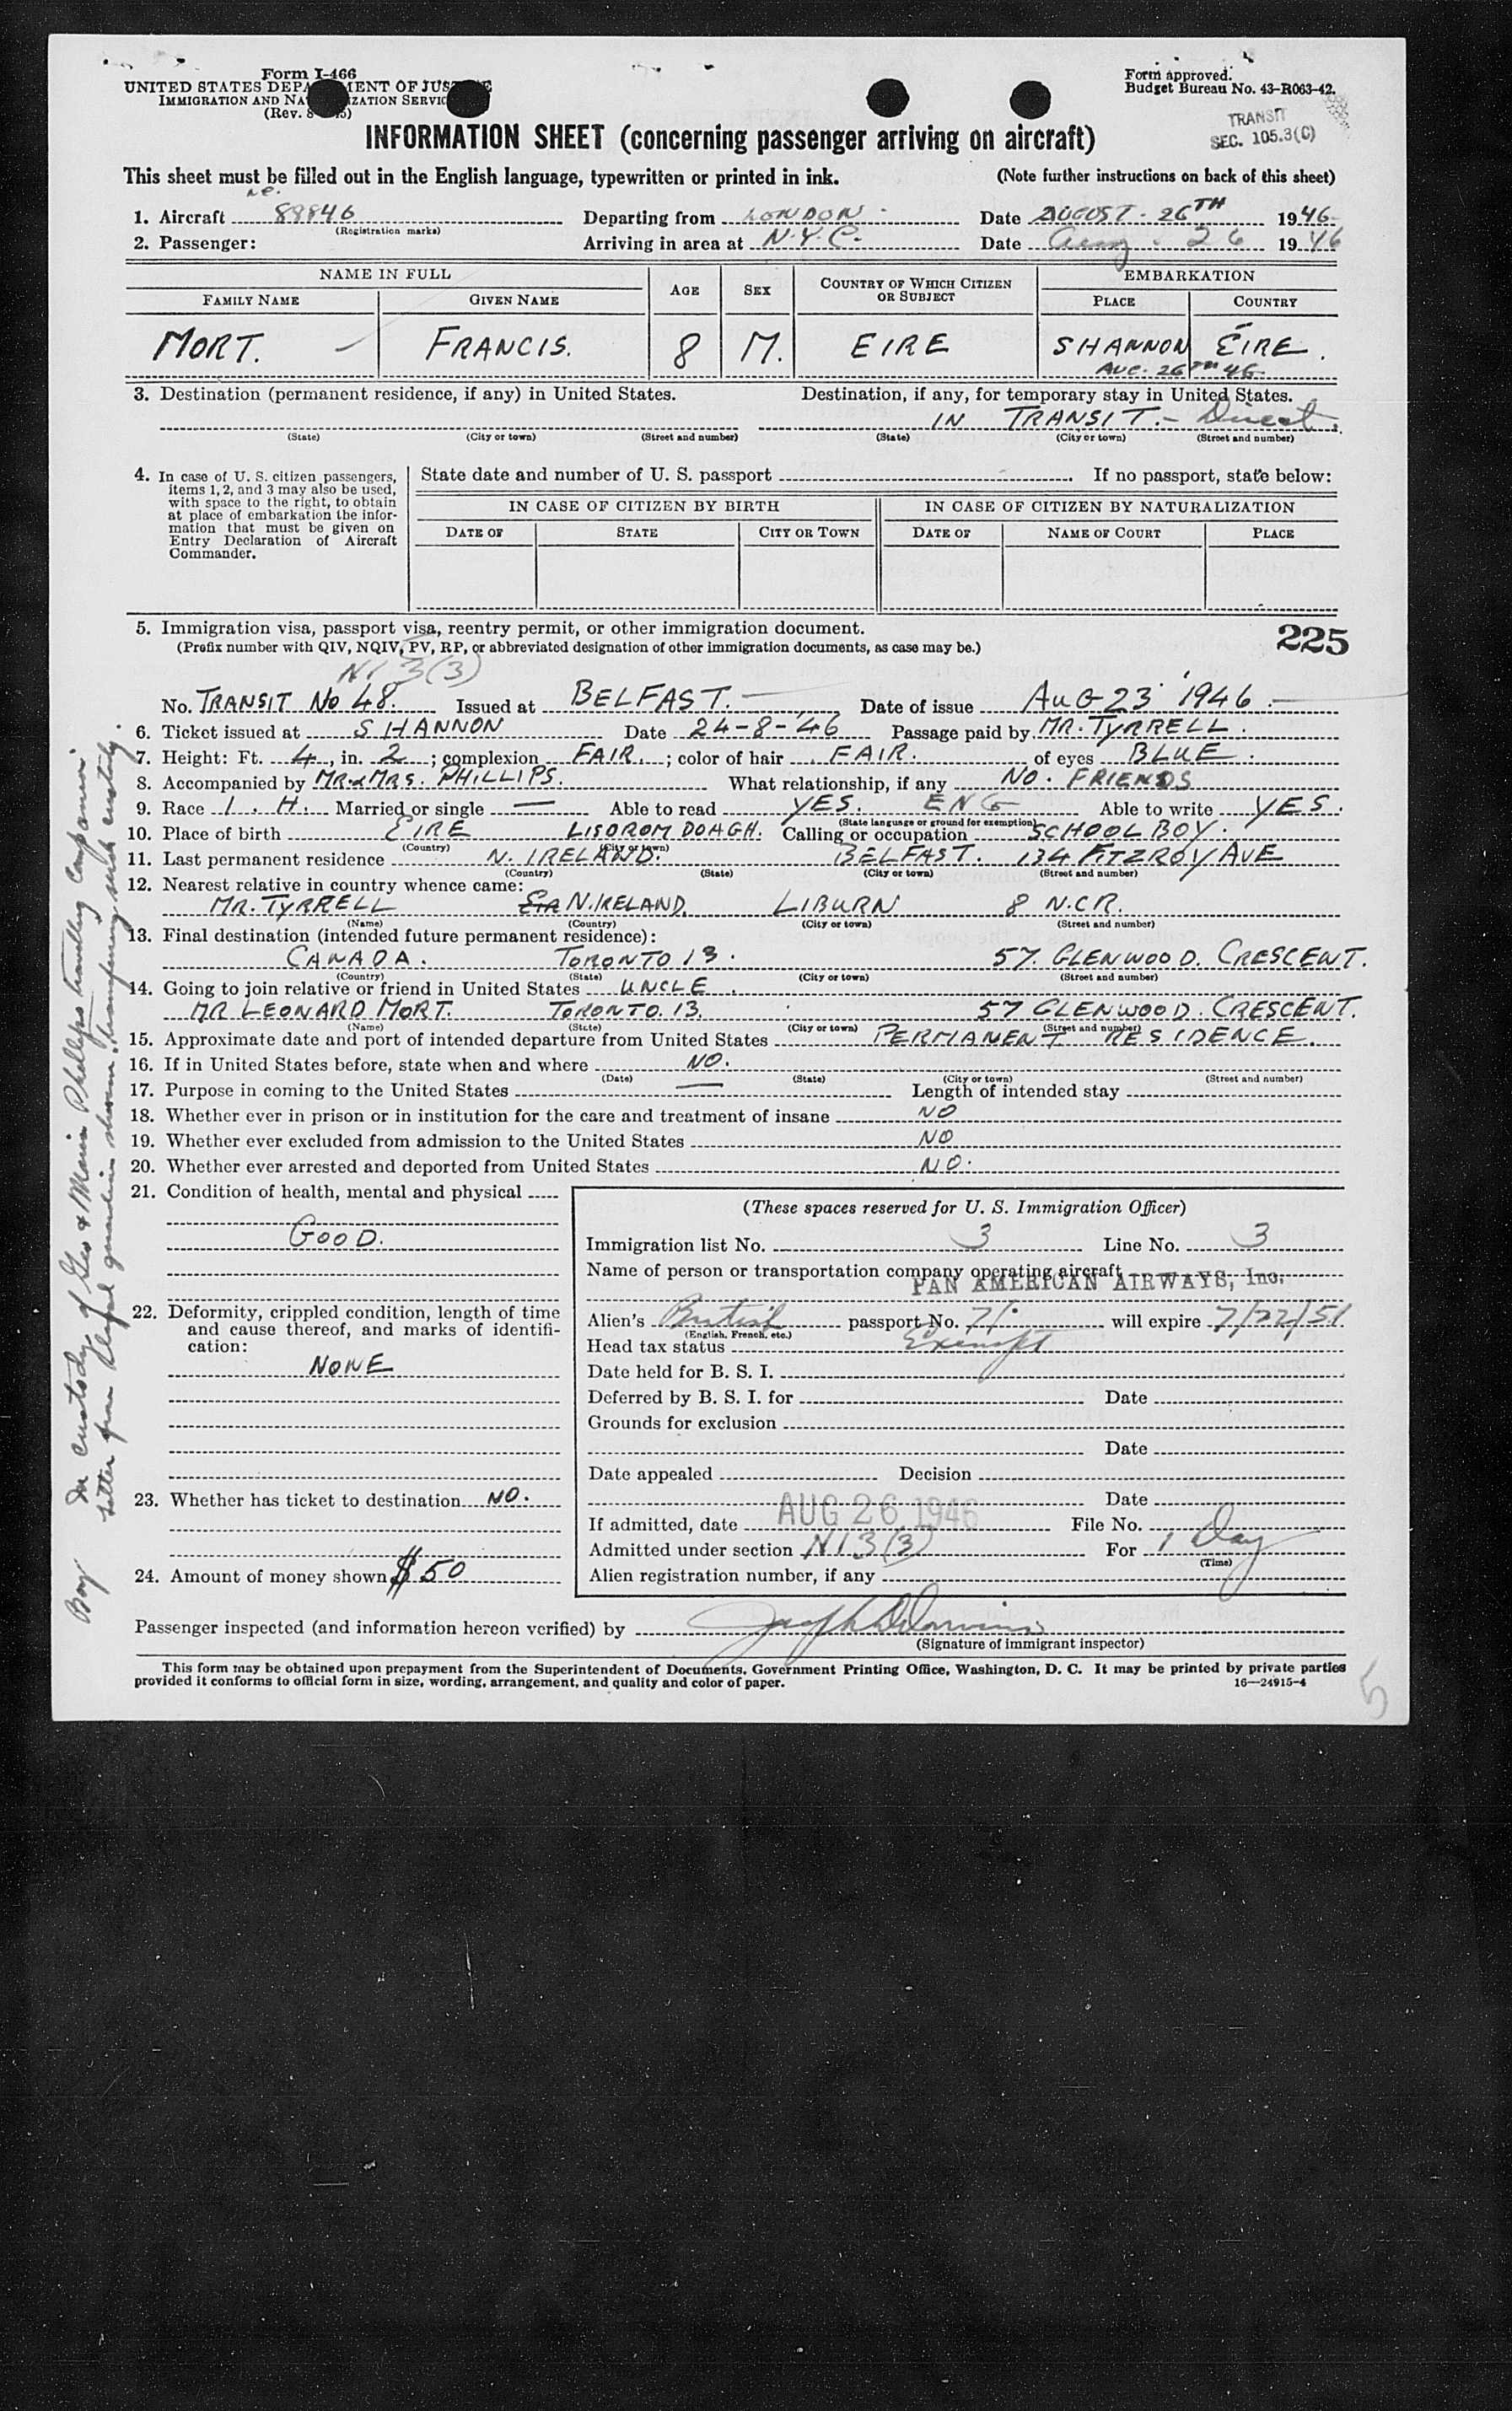 Form I-466
UNITED STATES DEPA MENT OF JUS E
IMMIGRATION AND NA IZATION SERVIC
(Rev. 8 5)
Form approved.
Budget Bureau No. 43-R063-42.
TRANSIT
SEC. 105.3(C)
INFORMATION SHEET (concerning passenger arriving on aircraft)
This sheet must be filled out in the English language, typewritten or printed in ink. (Note further instructions on back of this sheet)
1. Aircraft 88846 Departing from LONDON Date AUGUST. 26TH 1946
(Registration marks)
2. Passenger: Arriving in area at N.Y.C. Date Aug. 26 1946
NAME IN FULL AGE SEX COUNTRY OF WHICH CITIZEN OR SUBJECT EMBARKATION
FAMILY NAME GIVEN NAME PLACE COUNTRY
MORT. — FRANCIS. 8 M. EIRE SHANNON ÉIRE.
AUG. 26TH 46
3. Destination (permanent residence, if any) in United States. Destination, if any, for temporary stay in United States.
IN TRANSIT. - Direct.
(State) (City or town) (Street and number) (State) (City or town) (Street and number)
4. In case of U. S. citizen passengers, items 1, 2, and 3 may also be used, with space to the right, to obtain at place of embarkation the information that must be given on Entry Declaration of Aircraft Commander.
State date and number of U. S. passport If no passport, state below:
IN CASE OF CITIZEN BY BIRTH IN CASE OF CITIZEN BY NATURALIZATION
DATE OF STATE CITY OR TOWN DATE OF NAME OF COURT PLACE
5. Immigration visa, passport visa, reentry permit, or other immigration document. 225
(Prefix number with QIV, NQIV, PV, RP, or abbreviated designation of other immigration documents, as case may be.)
NI 3(3)
No. TRANSIT No 48. Issued at BELFAST. — Date of issue AUG 23 1946. —
6. Ticket issued at SHANNON Date 24-8-'46 Passage paid by MR. TYRRELL.
7. Height: Ft. 4, in. 2; complexion FAIR.; color of hair FAIR. of eyes BLUE.
8. Accompanied by MR & MRS. PHILLIPS. What relationship, if any NO. FRIENDS
9. Race I. H. Married or single — Able to read YES. ENG Able to write YES.
(State language or ground for exemption)
10. Place of birth EIRE LISDROM DOAGH. Calling or occupation SCHOOL BOY.
(Country) (City or town)
11. Last permanent residence N. IRELAND. BELFAST. 134 FITZROY AVE
(Country) (State) (City or town) (Street and number)
12. Nearest relative in country whence came:
MR. TYRRELL N. IRELAND. LIBURN 8 N.C.R.
(Name) (Country) (City or town) (Street and number)
13. Final destination (intended future permanent residence):
CANADA. TORONTO 13. 57 GLENWOOD. CRESCENT.
(Country) (State) (City or town) (Street and number)
14. Going to join relative or friend in United States UNCLE.
MR LEONARD MORT. TORONTO. 13. 57 GLENWOOD. CRESCENT.
(Name) (State) (City or town) (Street and number)
15. Approximate date and port of intended departure from United States PERMANENT RESIDENCE.
16. If in United States before, state when and where NO.
(Date) (State) (City or town) (Street and number)
17. Purpose in coming to the United States — Length of intended stay
18. Whether ever in prison or in institution for the care and treatment of insane NO
19. Whether ever excluded from admission to the United States NO
20. Whether ever arrested and deported from United States NO.
21. Condition of health, mental and physical
GOOD.
22. Deformity, crippled condition, length of time and cause thereof, and marks of identification:
NONE
23. Whether has ticket to destination NO.
24. Amount of money shown $50
(These spaces reserved for U. S. Immigration Officer)
Immigration list No. 3 Line No. 3
Name of person or transportation company operating aircraft
PAN AMERICAN AIRWAYS, Inc.
Alien's British passport No. 71 will expire 7/22/51
(English, French, etc.)
Head tax status Exempt
Date held for B. S. I.
Deferred by B. S. I. for Date
Grounds for exclusion
Date
Date appealed Decision
Date
If admitted, date AUG 26 1946 File No.
Admitted under section NI 3(3) For 1 Day
(Time)
Alien registration number, if any
Passenger inspected (and information hereon verified) by
(Signature of immigrant inspector)
This form may be obtained upon prepayment from the Superintendent of Documents, Government Printing Office, Washington, D. C. It may be printed by private parties
provided it conforms to official form in size, wording, arrangement, and quality and color of paper. 16—24915-4
5
Boy in custody of Geo & Marie Phillips travelling companions.
letter from legal guardian shown transferring such custody.